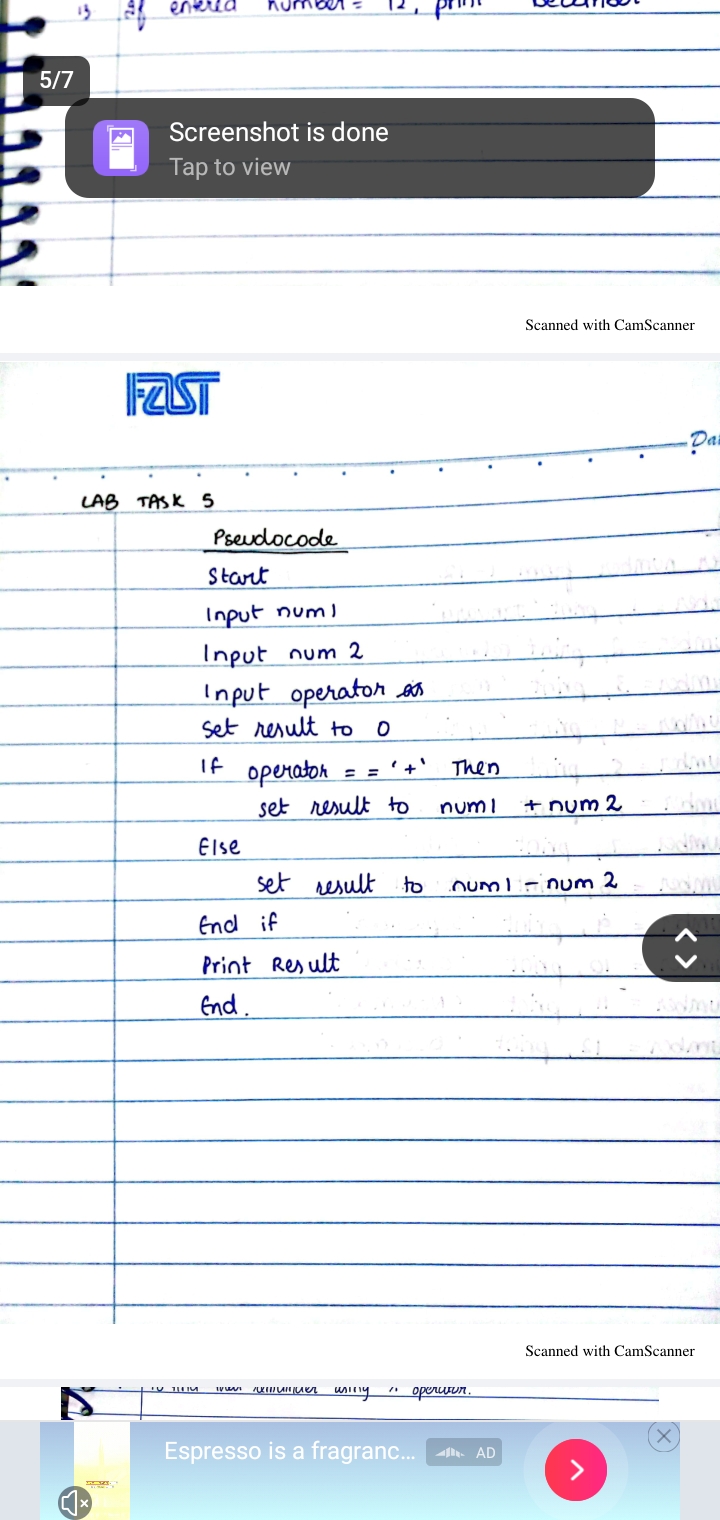 13 If entered number = 12, print December
5/7
Screenshot is done
Tap to view
Scanned with CamScanner
FAST
LAB TASK 5
Pseudocode
Start
Input num1
Input num 2
Input operator as
Set result to 0
If operator = = '+' Then
set result to num1 + num2
Else
set result to num1 - num2
End if
Print Result
End.
Scanned with CamScanner
remainder using operator.
Espresso is a fragranc...
AD